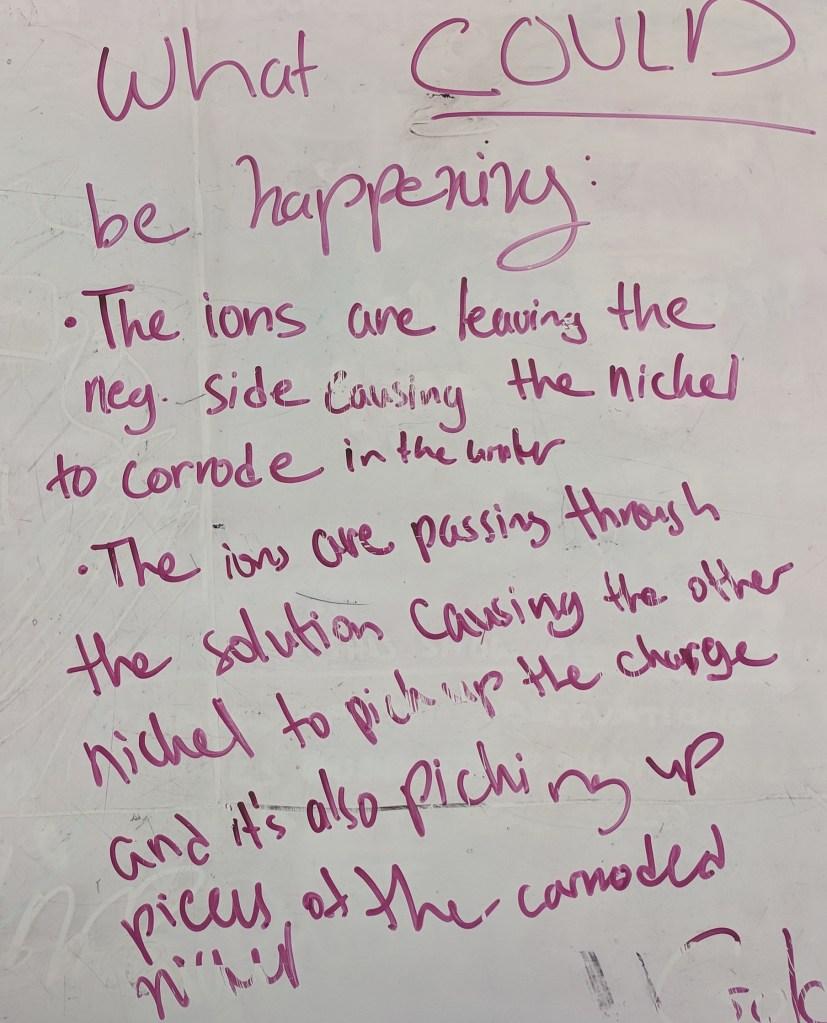 What COULD
be happening:
• The ions are leaving the
neg. side causing the nickel
to corrode in the water
• The ions are passing through
the solution causing the other
nickel to pick up the charge
and it's also picking up
pieces of the corroded
nickel